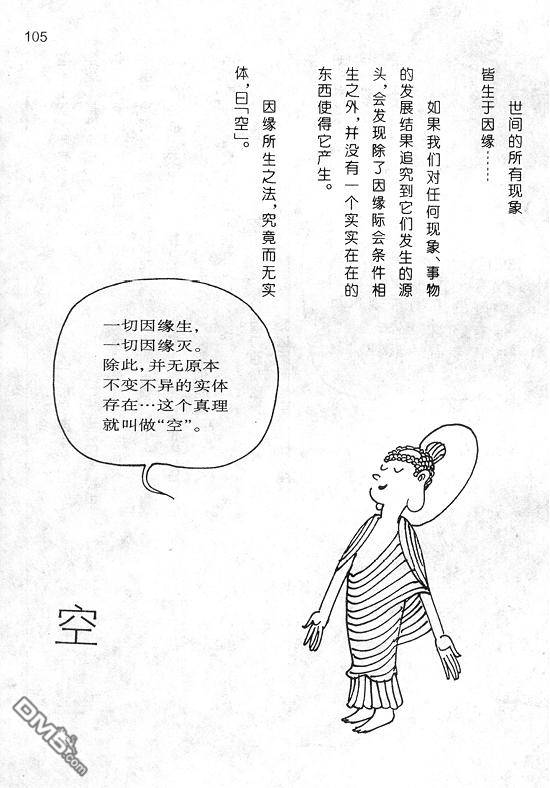 105
世间的所有现象
皆生于因缘……
如果我们对任何现象、事物
的发展结果追究到它们发生的源
头,会发现除了因缘际会条件相
生之外,并没有一个实实在在的
东西使得它产生。
因缘所生之法,究竟而无实
体,曰「空」。
一切因缘生,
一切因缘灭。
除此,并无原本
不变不异的实体
存在…这个真理
就叫做“空”。
空
DM5.com